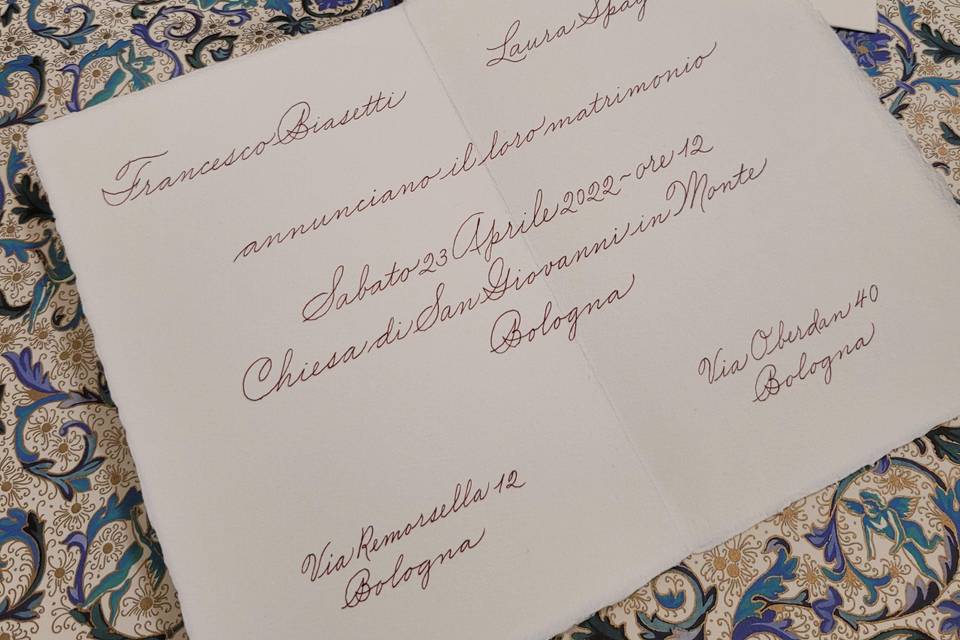 Francesco Biasetti
Laura
annunciano il loro matrimonio
Sabato 23 Aprile 2022 ~ ore 12
Chiesa di San Giovanni in Monte
Bologna
Via Remorsella 12
Bologna
Via Oberdan 40
Bologna